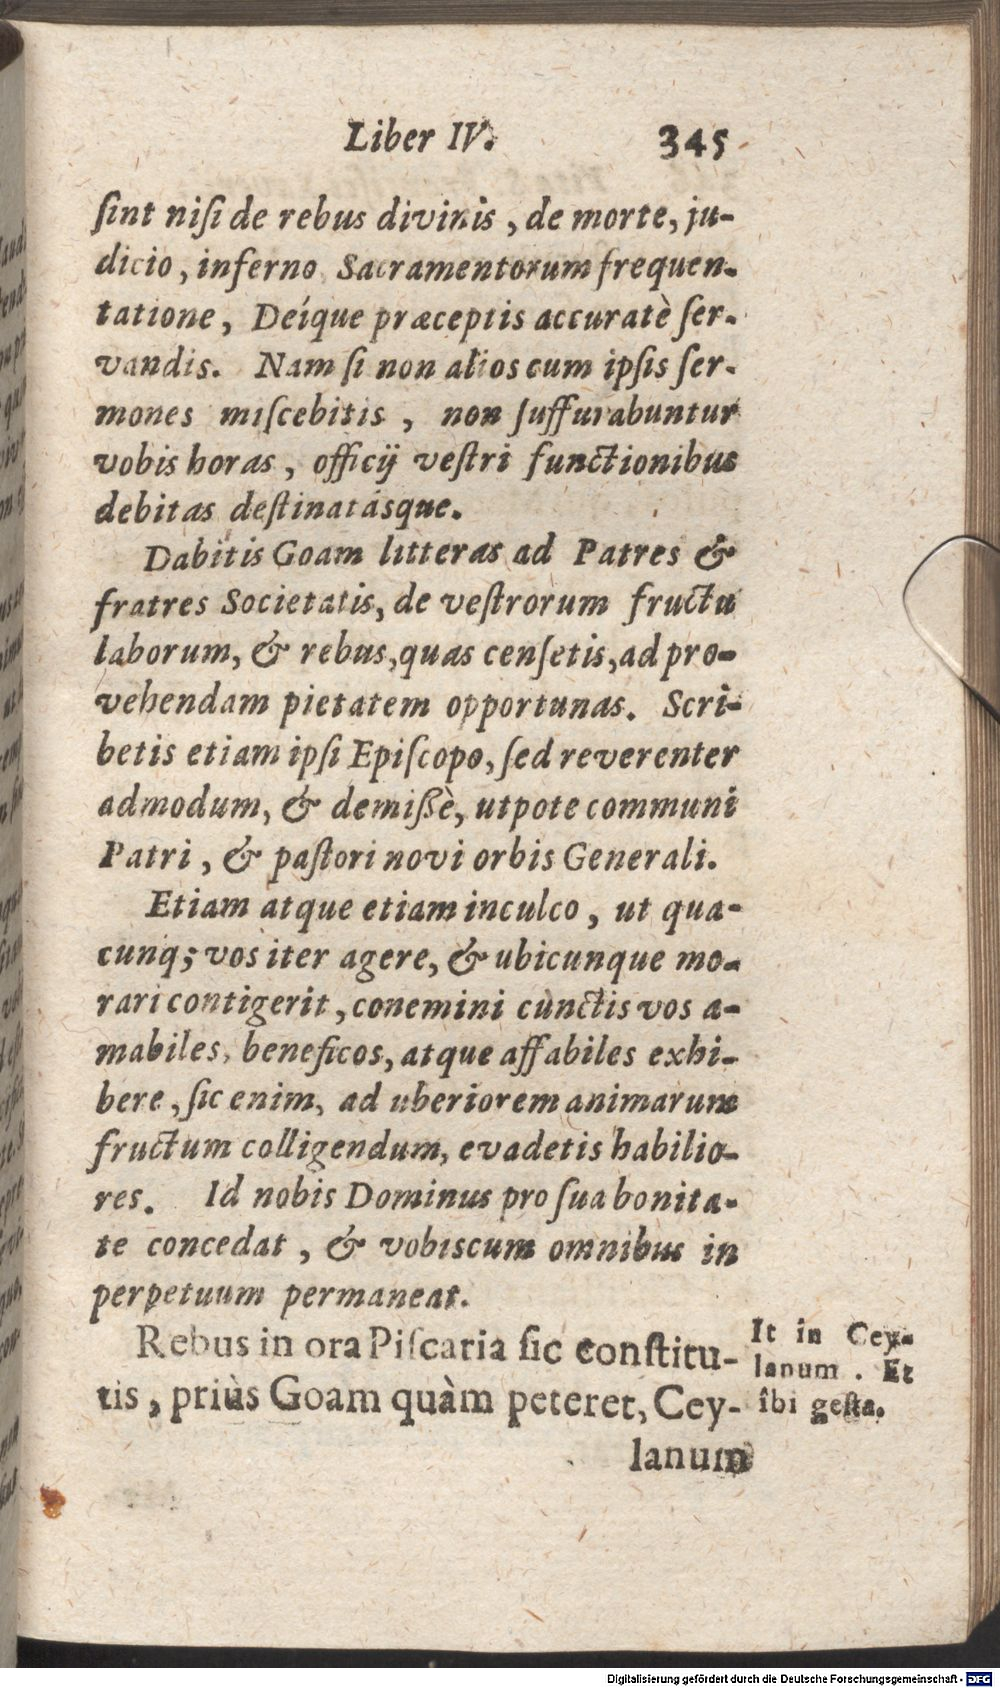 Liber IV. 345
ſint niſi de rebus divinis, de morte, ju-
dicio, inferno Sacramentorum frequen-
tatione, Deíque præceptis accuratè ſer-
vandis. Nam ſi non alios cum ipſis ſer-
mones miſcebitis, non ſuffurabuntur
vobis horas, officij veſtri functionibus
debitas deſtinatásque.
Dabitis Goam litteras ad Patres &
fratres Societatis, de veſtrorum fructu
laborum, & rebus, quas cenſetis, ad pro-
vehendam pietatem opportunas. Scri-
betis etiam ipſi Epiſcopo, ſed reverenter
admodum, & demiſſè, utpote communi
Patri, & paſtori novi orbis Generali.
Etiam atque etiam inculco, ut qua-
cunq; vos iter agere, & ubicunque mo-
rari contigerit, conemini cunctis vos a-
mabiles, beneficos, atque affabiles exhi-
bere, ſic enim, ad uberiorem animarum
fructum colligendum, evadetis habilio-
res. Id nobis Dominus pro ſua bonita-
te concedat, & vobiscum omnibus in
perpetuum permaneat.
Rebus in ora Piſcaria ſic conſtitu-
tis, priùs Goam quàm peteret, Cey-
lanum
It in Cey-
lanum. Et
îbi geſta.
Digitalisierung gefördert durch die Deutsche Forschungsgemeinschaft - DFG